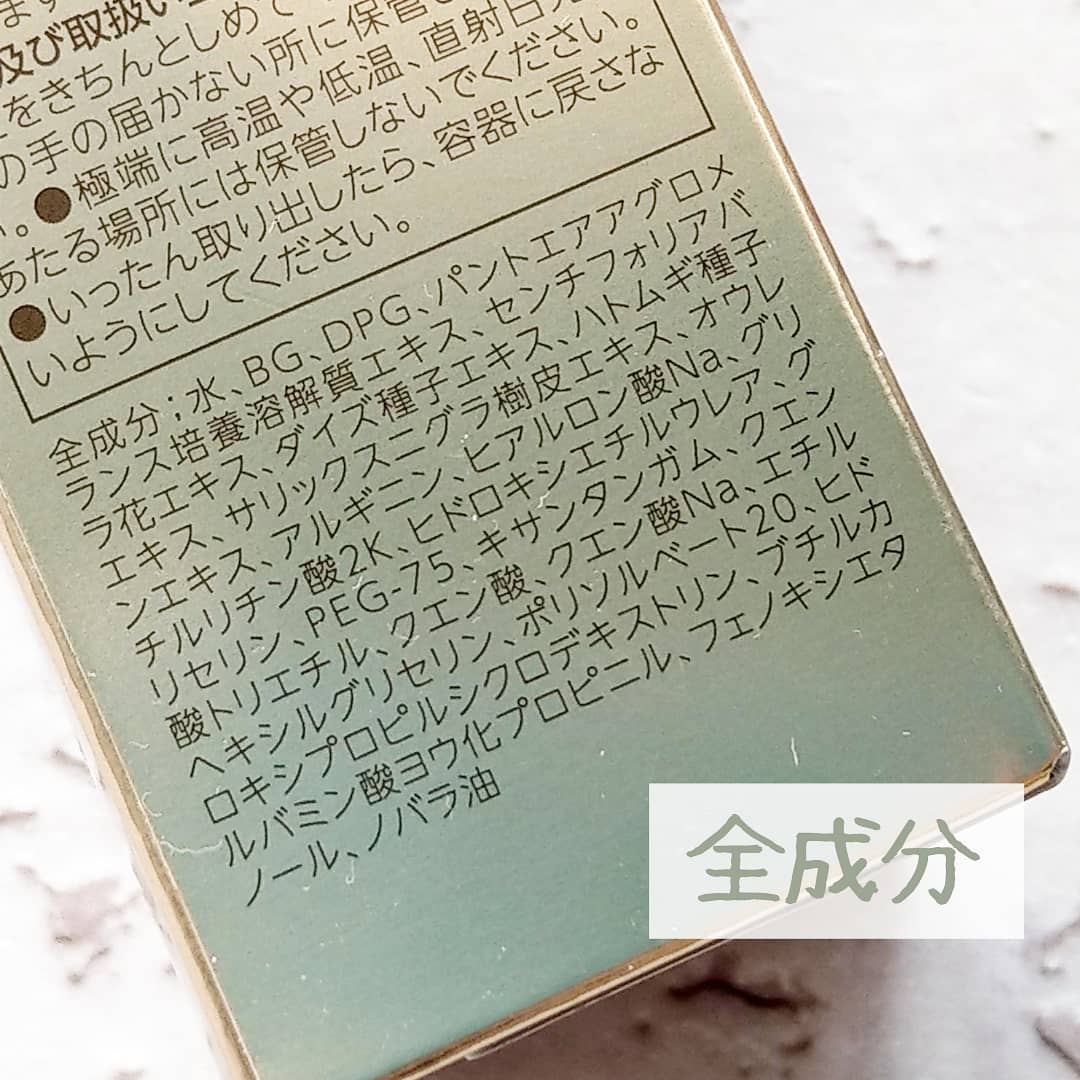 ます
及び取扱い上
をきちんとしめて
の手の届かない所に保管し
い。●極端に高温や低温、直射日光
あたる場所には保管しないでください。
●いったん取り出したら、容器に戻さな
いようにしてください。
全成分;水、BG、DPG、パントエアアグロメ
ランス培養溶解質エキス、センチフォリアバ
ラ花エキス、ダイズ種子エキス、ハトムギ種子
エキス、サリックスニグラ樹皮エキス、オウレ
ンエキス、アルギニン、ヒアルロン酸Na、グリ
チルリチン酸2K、ヒドロキシエチルウレア、グ
リセリン、PEG-75、キサンタンガム、クエン
酸トリエチル、クエン酸、クエン酸Na、エチル
ヘキシルグリセリン、ポリソルベート20、ヒド
ロキシプロピルシクロデキストリン、ブチルカ
ルバミン酸ヨウ化プロピニル、フェノキシエタ
ノール、ノバラ油
全成分